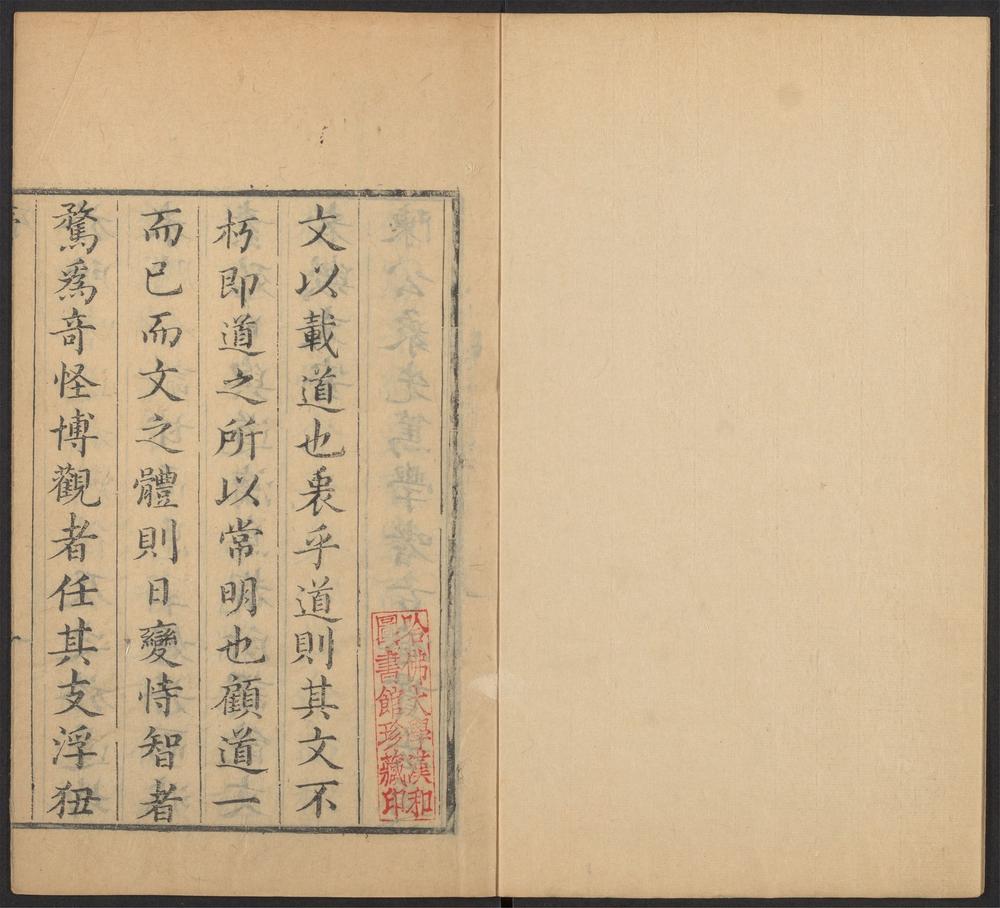 哈佛大學漢和
圖書館珍藏印
文以載道也衷乎道則其文不
朽即道之所以常明也顧道一
而已而文之體則日變恃智者
騖爲奇怪博觀者任其支浮狃